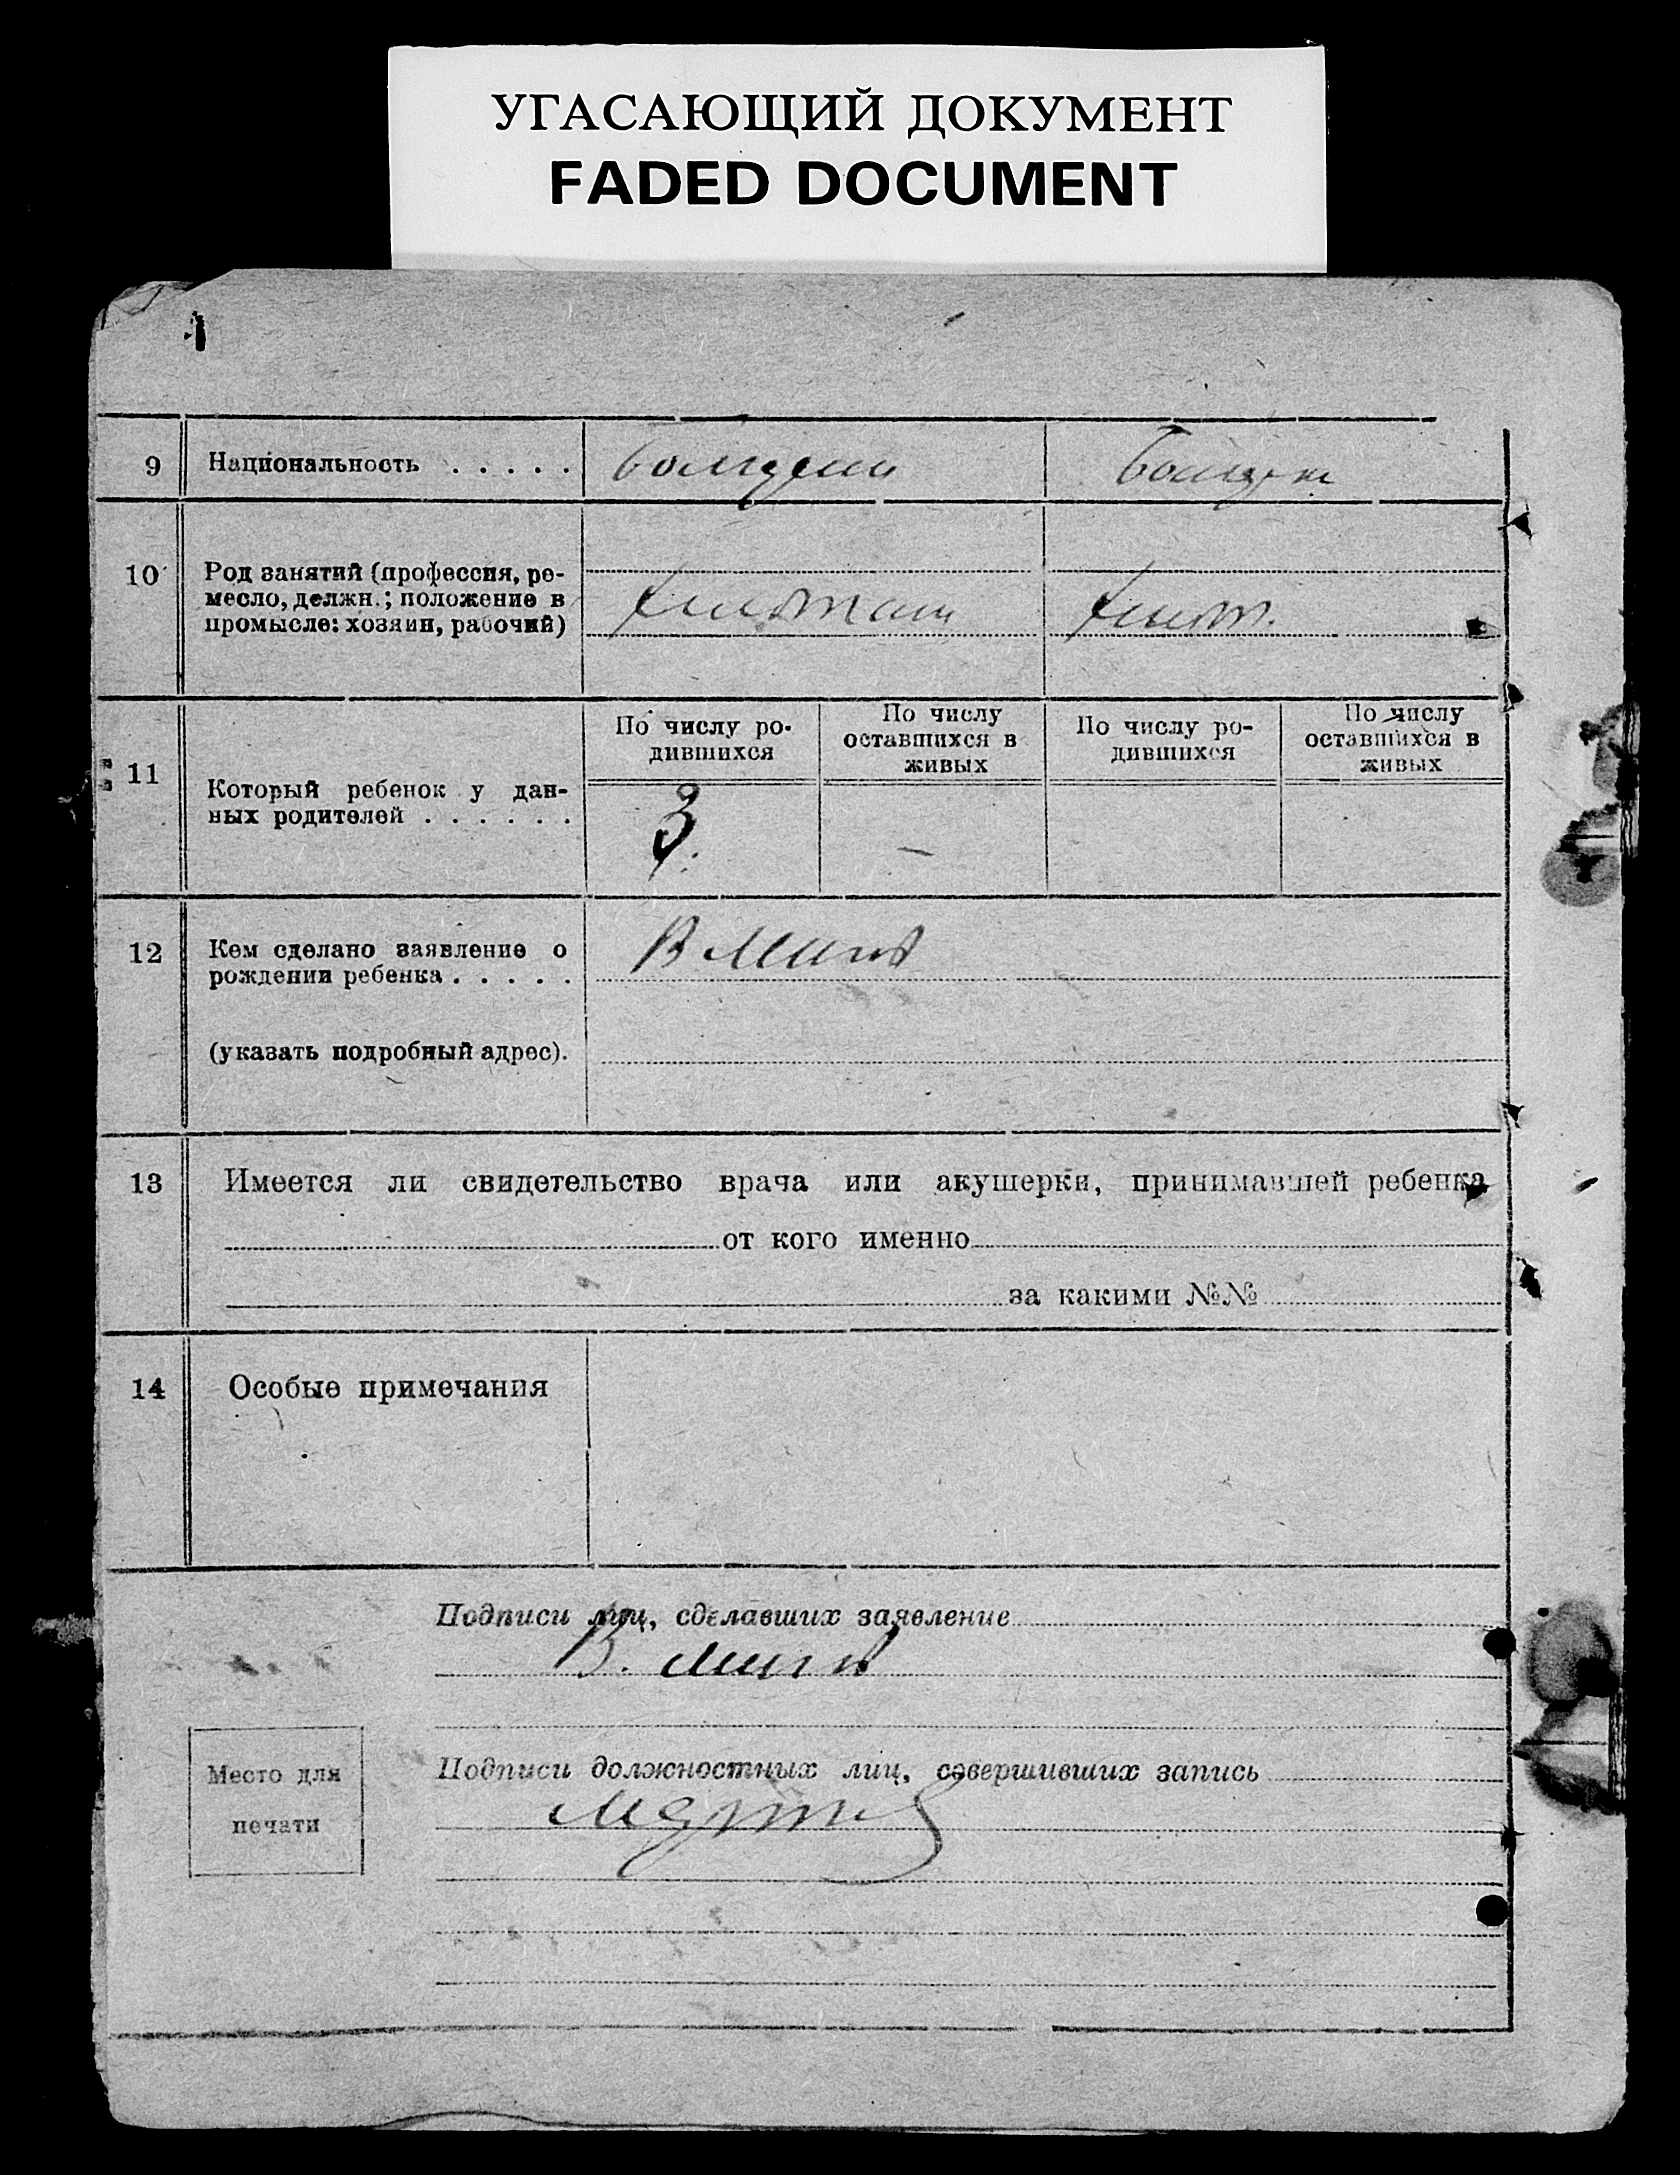 УГАСАЮЩИЙ ДОКУМЕНТ
FADED DOCUMENT
9 Национальность . . . . .
10 Род занятий (профессия, ре-
месло, должн.; положение в
промысле: хозяин, рабочий)
11 Который ребенок у дан-
ных родителей . . . . . .
По числу ро-
дившихся
По числу
оставшихся в
живых
По числу ро-
дившихся
По числу
оставшихся в
живых
3. —
12 Кем сделано заявление о
рождении ребенка . . . . .
(указать подробный адрес).
В
13 Имеется ли свидетельство врача или акушерки, принимавшей ребенка
от кого именно
за какими №№
14 Особые примечания
Подписи лиц, сделавших заявление
В.
Место для
печати
Подписи должностных лиц, совершивших запись